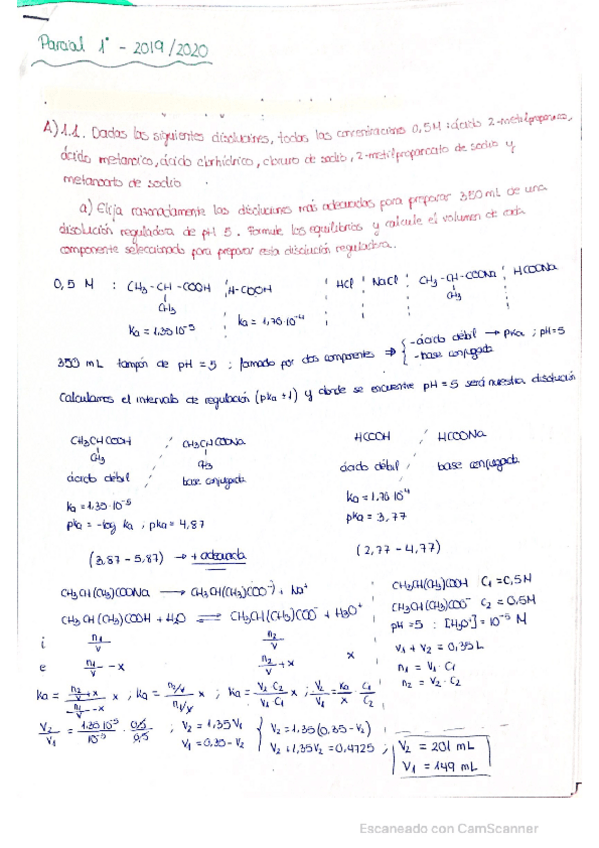 Parcial 1° - 2019/2020
A) 1.1. Dadas las siguientes disoluciones, todas las concentraciones 0,5M: ácido 2-metilpropanoico,
ácido metanoico, ácido clorhídrico, cloruro de sodio, 2-metilpropanoato de sodio y
metanoato de sodio.
a) Elija razonadamente las disoluciones más adecuadas para preparar 350 mL de una
disolución reguladora de pH 5. Formule los equilibrios y calcule el volumen de cada
componente seleccionado para preparar esta disolución reguladora.
0,5 M : CH3-CH-COOH H-COOH HCl NaCl CH3-CH-COONa HCOONa
CH3 CH3
Ka = 1,35·10⁻⁵ Ka = 1,70·10⁻⁴
350 mL tampón de pH = 5 ; formado por dos componentes ⇒ { -ácido débil → pKa ; pH=5
-base conjugada
Calculamos el intervalo de regulación (pKa ±1) y donde se encuentre pH = 5 será nuestra disolución
CH3CHCOOH / CH3CHCOONa HCOOH / HCOONa
CH3 CH3
ácido débil base conjugada ácido débil base conjugada
Ka = 1,35·10⁻⁵ Ka = 1,70·10⁻⁴
pKa = -log Ka , pKa = 4,87 pKa = 3,77
(3,87 - 5,87) → + adecuada (2,77 - 4,77)
CH3CH(CH3)COONa → CH3CH(CH3)COO⁻ + Na⁺ CH3CH(CH3)COOH C1 = 0,5M
CH3CH(CH3)COOH + H2O ⇌ CH3CH(CH3)COO⁻ + H3O⁺ CH3CH(CH3)COO⁻ C2 = 0,5M
pH = 5 : [H3O⁺] = 10⁻⁵ M
i n1/V n2/V V1 + V2 = 0,35L
e n1/V - x n2/V + x x n1 = V1 · C1
n2 = V2 · C2
Ka = (n2/V + x)/(n1/V - x) x ; Ka = (n2/V)/(n1/V) x ; Ka = V2 C2/V1 C1 x ; V2/V1 = Ka/x · C1/C2
V2/V1 = 1,35·10⁻⁵/10⁻⁵ · 0,5/0,5 ; V2 = 1,35V1 { V2 = 1,35(0,35 - V2)
V1 = 0,35 - V2 V2 + 1,35V2 = 0,4725 ; V2 = 201 mL
V1 = 149 mL
Escaneado con CamScanner